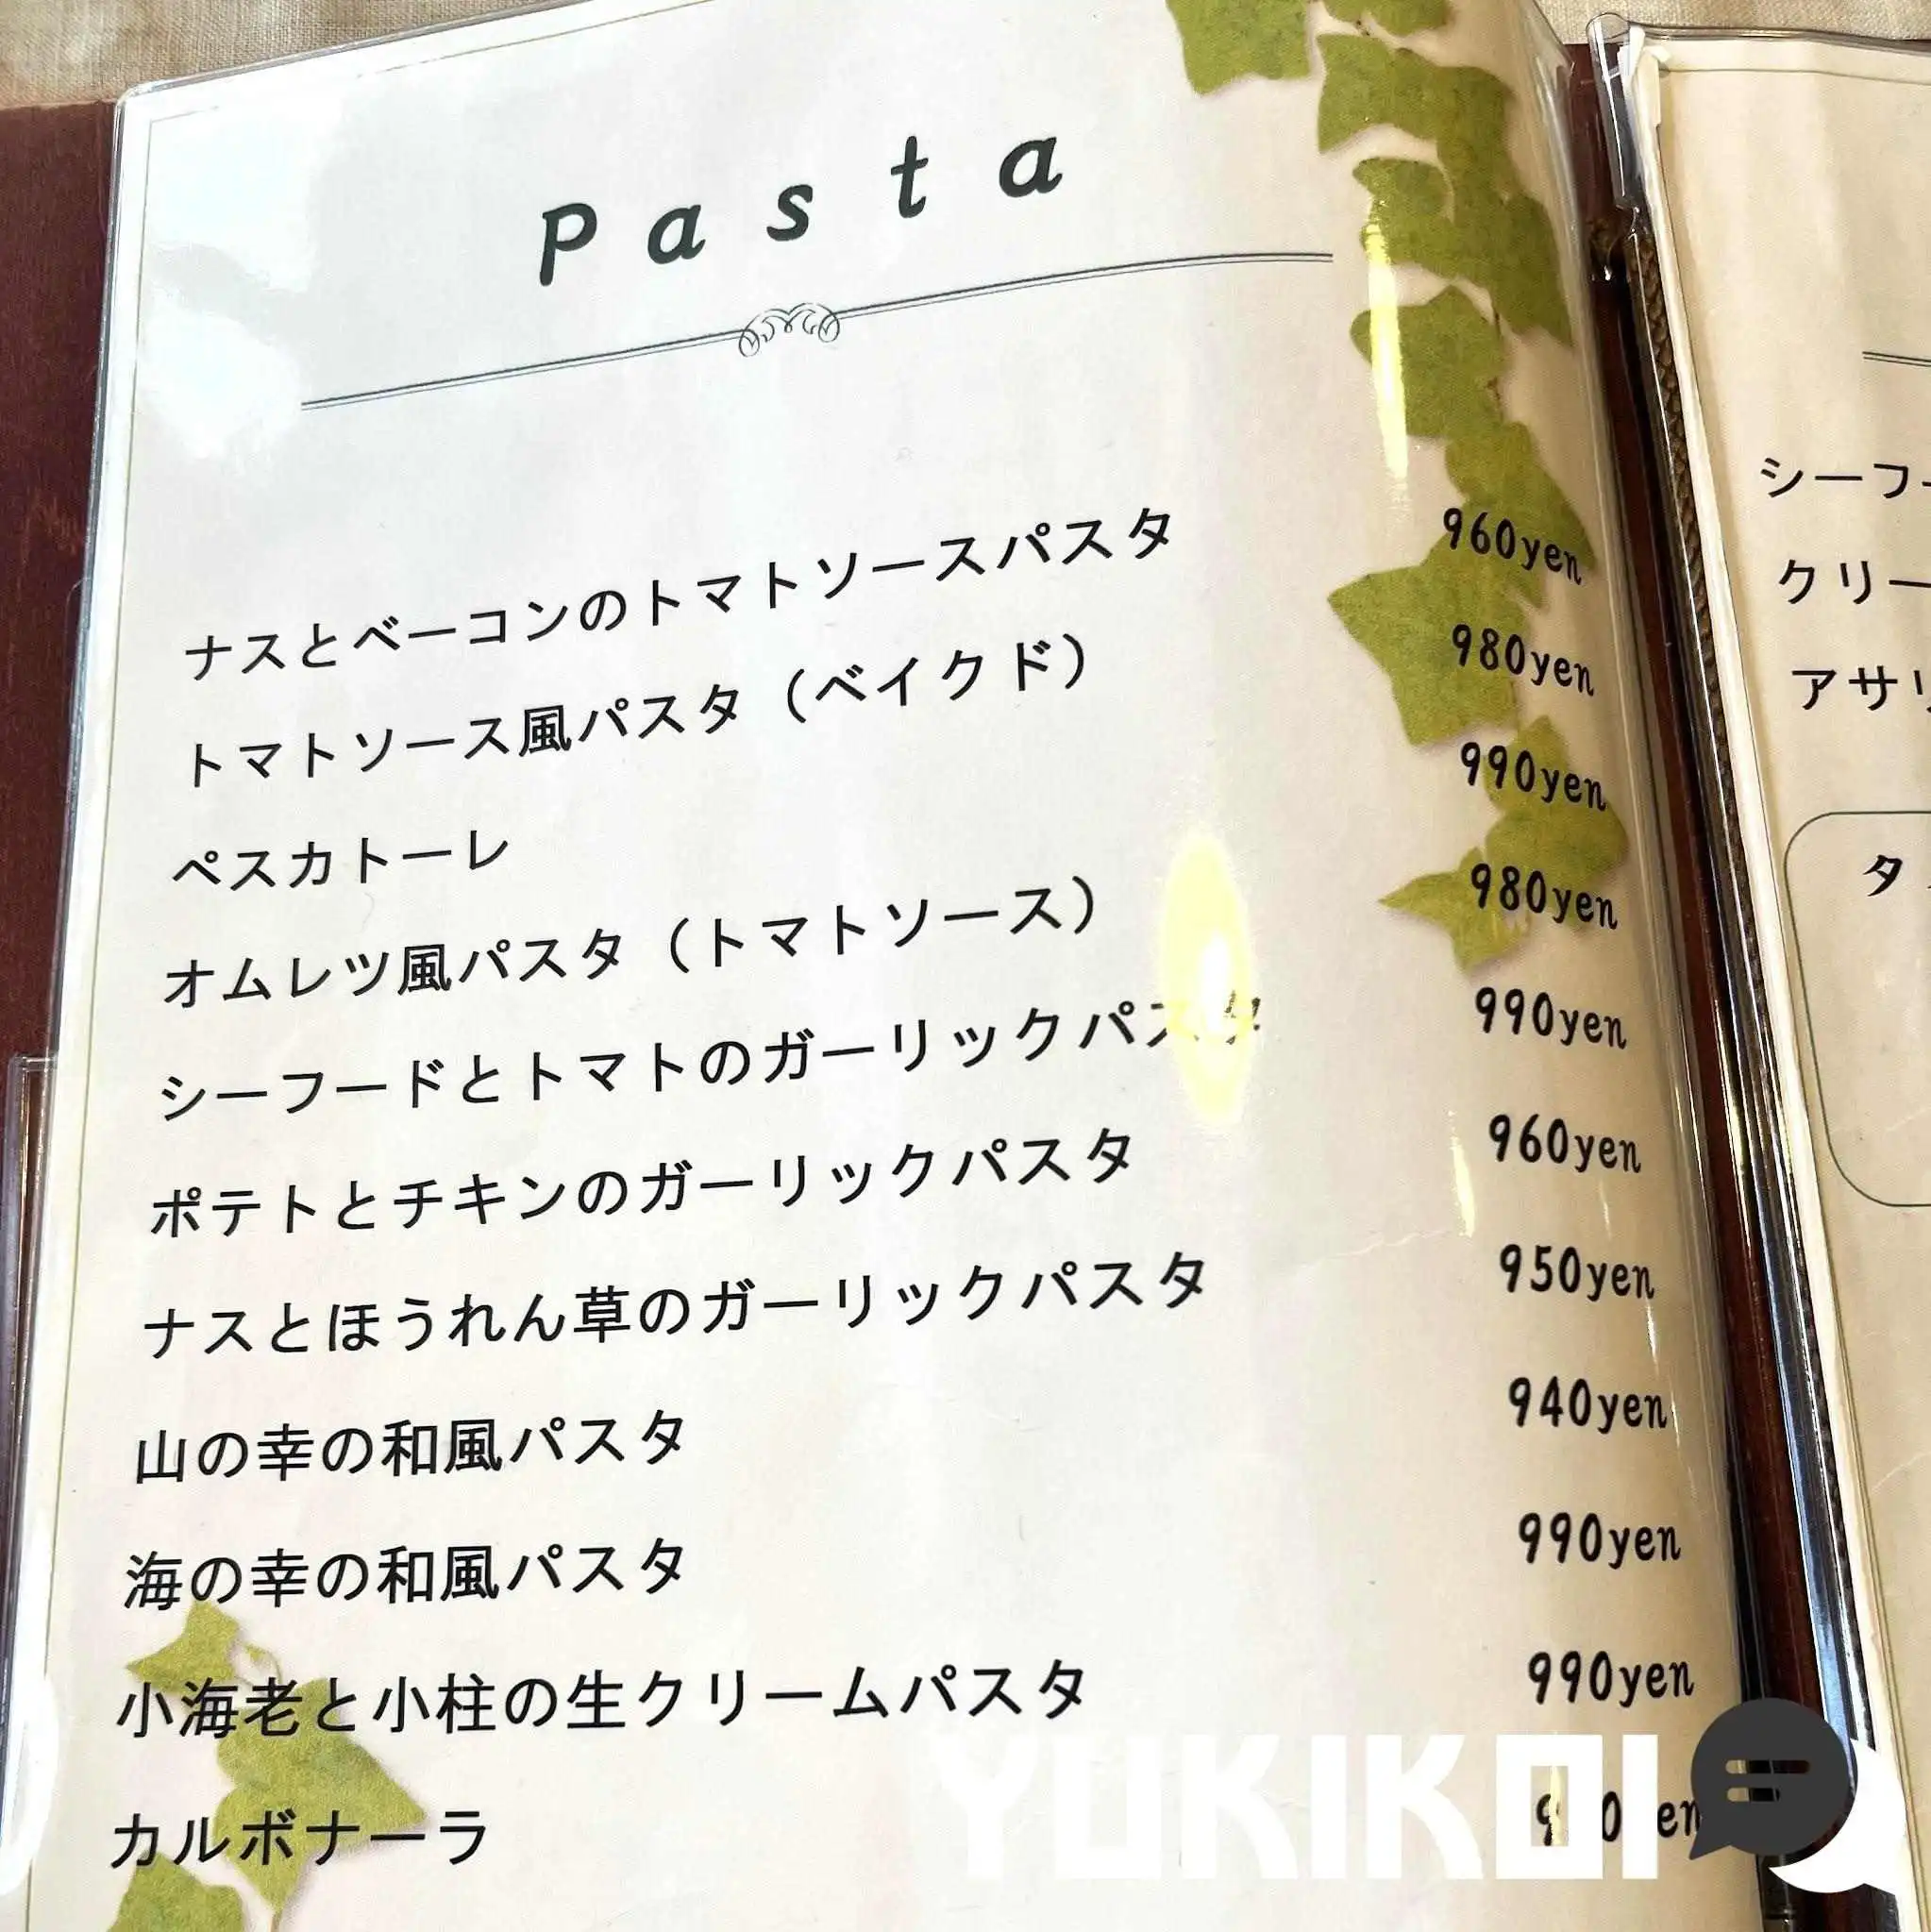 Pasta
ナスとベーコンのトマトソースパスタ 960yen
トマトソース風パスタ（ベイクド） 980yen
ペスカトーレ 990yen
オムレツ風パスタ（トマトソース） 980yen
シーフードとトマトのガーリックパスタ 990yen
ポテトとチキンのガーリックパスタ 960yen
ナスとほうれん草のガーリックパスタ 950yen
山の幸の和風パスタ 940yen
海の幸の和風パスタ 990yen
小海老と小柱の生クリームパスタ 990yen
カルボナーラ
YUKIKOI
シーフ
クリー
アサリ
タ